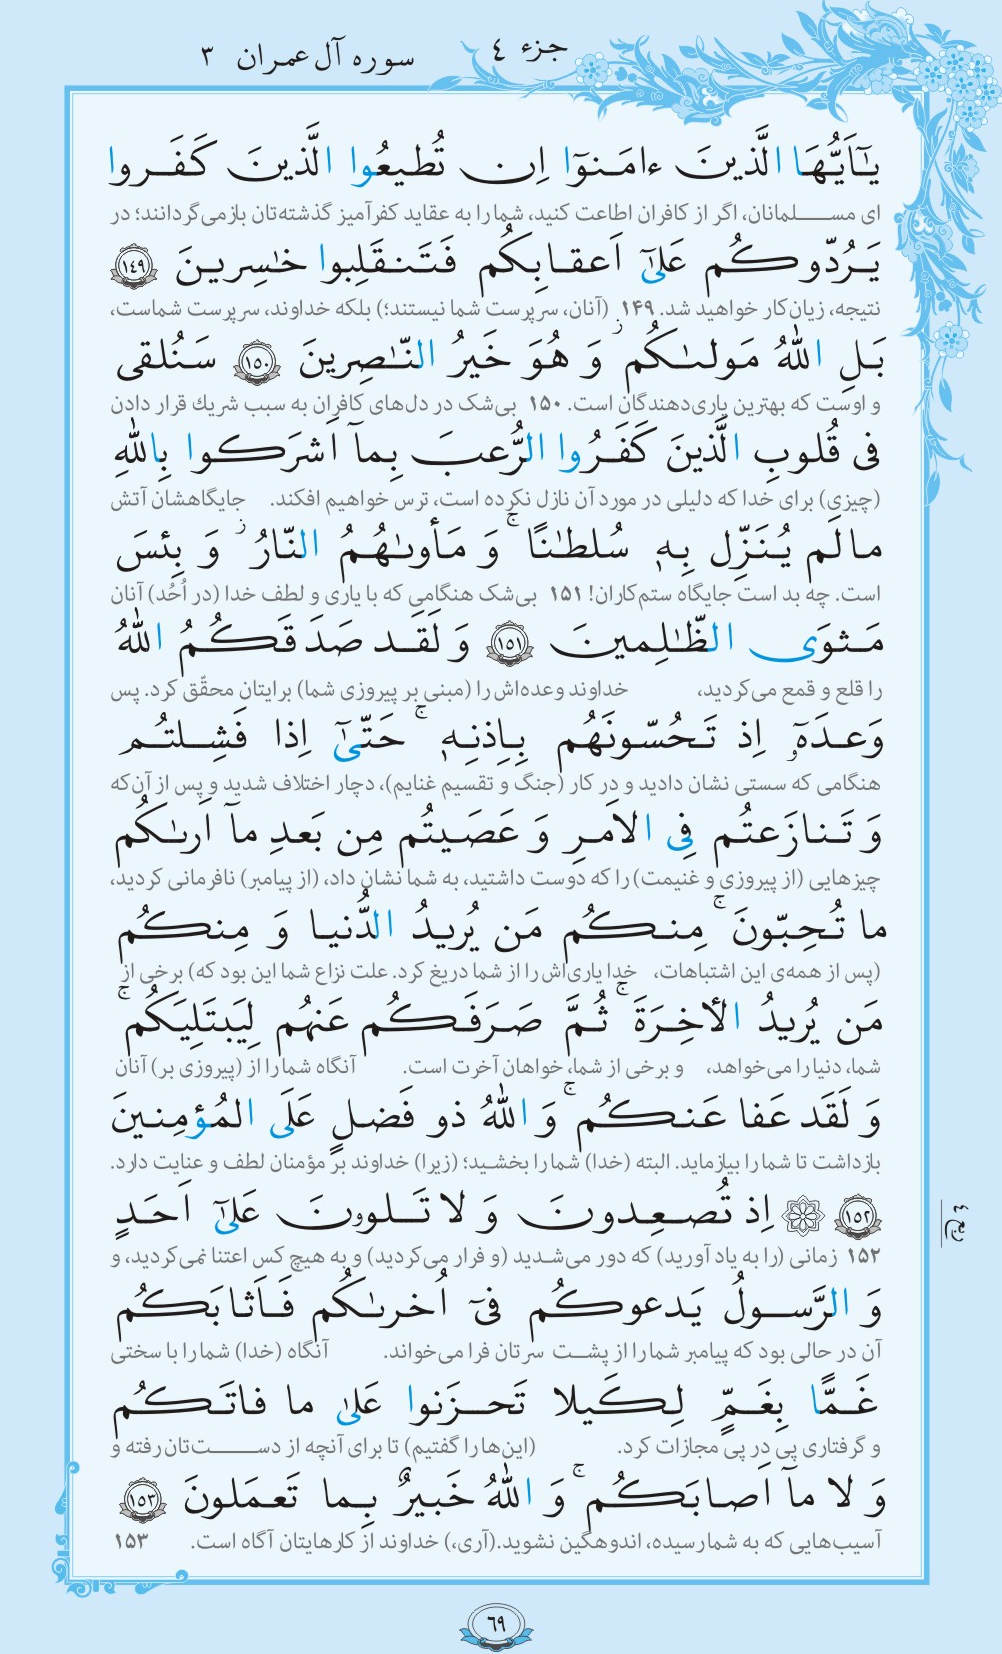 جزء ٤
سوره آل عمران ٣
يـٰٓاَيُّهَا الَّذينَ ءامَنوٓا اِن تُطيعُوا الَّذينَ كَفَروا
ای مسلمانان، اگر از کافران اطاعت کنید، شما را به عقاید کفرآمیز گذشته‌تان بازمی‌گردانند؛ در
يَرُدّوكُم عَلىٰٓ اَعقابِكُم فَتَنقَلِبوا خـٰسِرينَ ﴿١٤٩﴾
نتیجه، زیان‌کار خواهید شد. ۱۴۹ (آنان، سرپرست شما نیستند؛) بلکه خداوند، سرپرست شماست،
بَلِ اللّٰهُ مَولىٰكُم ۖ وَ هُوَ خَيرُ النّـٰصِرينَ ﴿١٥٠﴾ سَنُلقى
و اوست که بهترین یاری‌دهندگان است. ۱۵۰ بی‌شک در دل‌های کافران به سبب شریك قرار دادن
فى قُلوبِ الَّذينَ كَفَرُوا الرُّعبَ بِمآ اَشرَكوا بِاللّٰهِ
(چیزی) برای خدا که دلیلی در مورد آن نازل نکرده است، ترس خواهیم افکند. جایگاهشان آتش
ما لَم يُنَزِّل بِهٖ سُلطـٰنًا ۚ وَ مَأوىٰهُمُ النّارُ ز وَ بِئسَ
است. چه بد است جایگاه ستم‌کاران! ۱۵۱ بی‌شک هنگامی که با یاری و لطف خدا (در اُحُد) آنان
مَثوَى الظّـٰلِمينَ ﴿١٥١﴾ وَ لَقَد صَدَقَكُمُ اللّٰهُ
را قلع و قمع می‌کردید، خداوند وعده‌اش را (مبنی بر پیروزی شما) برایتان محقّق کرد. پس
وَعدَهٗٓ اِذ تَحُسّونَهُم بِاِذنِهٖ ۚ حَتّىٰٓ اِذا فَشِلتُم
هنگامی که سستی نشان دادید و در کار (جنگ و تقسیم غنایم)، دچار اختلاف شدید و پس از آن‌که
وَ تَنازَعتُم فِى الاَمرِ وَ عَصَيتُم مِن بَعدِ مآ اَرىٰكُم
چیزهایی (از پیروزی و غنیمت) را که دوست داشتید، به شما نشان داد، (از پیامبر) نافرمانی کردید،
ما تُحِبّونَ ۚ مِنكُم مَن يُريدُ الدُّنيا وَ مِنكُم
(پس از همه‌ی این اشتباهات، خدا یاری‌اش را از شما دریغ کرد. علت نزاع شما این بود که) برخی از
مَن يُريدُ الأخِرَةَ ۚ ثُمَّ صَرَفَكُم عَنهُم لِيَبتَلِيَكُم ۚ
شما، دنیا را می‌خواهد، و برخی از شما، خواهان آخرت است. آنگاه شما را از (پیروزی بر) آنان
وَ لَقَد عَفا عَنكُم ۚ وَ اللّٰهُ ذو فَضلٍ عَلَى المُؤمِنينَ
بازداشت تا شما را بیازماید. البته (خدا) شما را بخشید؛ (زیرا) خداوند بر مؤمنان لطف و عنایت دارد.
﴿١٥٢﴾ ۞ اِذ تُصعِدونَ وَ لا تَلوونَ عَلىٰٓ اَحَدٍ
۱۵۲ زمانی (را به یاد آورید) که دور می‌شدید (و فرار می‌کردید) و به هیچ کس اعتنا نمی‌کردید، و
ربع ٤
وَ الرَّسولُ يَدعوكُم فىٓ اُخرىٰكُم فَاَثابَكُم
آن در حالی بود که پیامبر شما را از پشت سرتان فرا می‌خواند. آنگاه (خدا) شما را با سختی
غَمًّا بِغَمٍّ لِكَيلا تَحزَنوا عَلىٰ ما فاتَكُم
و گرفتاری پی در پی مجازات کرد. (این‌ها را گفتیم) تا برای آنچه از دست‌تان رفته و
وَ لا مآ اَصابَكُم ۚ وَ اللّٰهُ خَبيرٌ بِما تَعمَلونَ ﴿١٥٣﴾
آسیب‌هایی که به شما رسیده، اندوهگین نشوید.(آری،) خداوند از کارهایتان آگاه است. ۱۵۳
٦٩